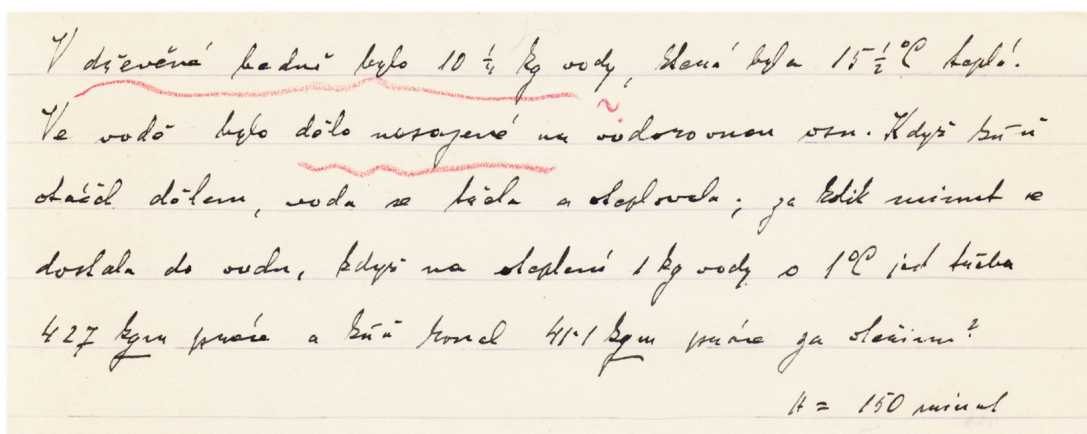 V dřevěné bedně bylo 10 ¼ kg vody, která byla 15 ½ °C teplá.
Ve vodě bylo dělo nasazené na vodorovnou osu. Když kůň
otáčel dělem, voda se třela a oteplovala; za kolik minut se
dostala do varu, když na oteplení 1 kg vody o 1°C jest třeba
427 kgm práce a kůň konal 41·1 kgm práce za vteřinu?
= 150 minut